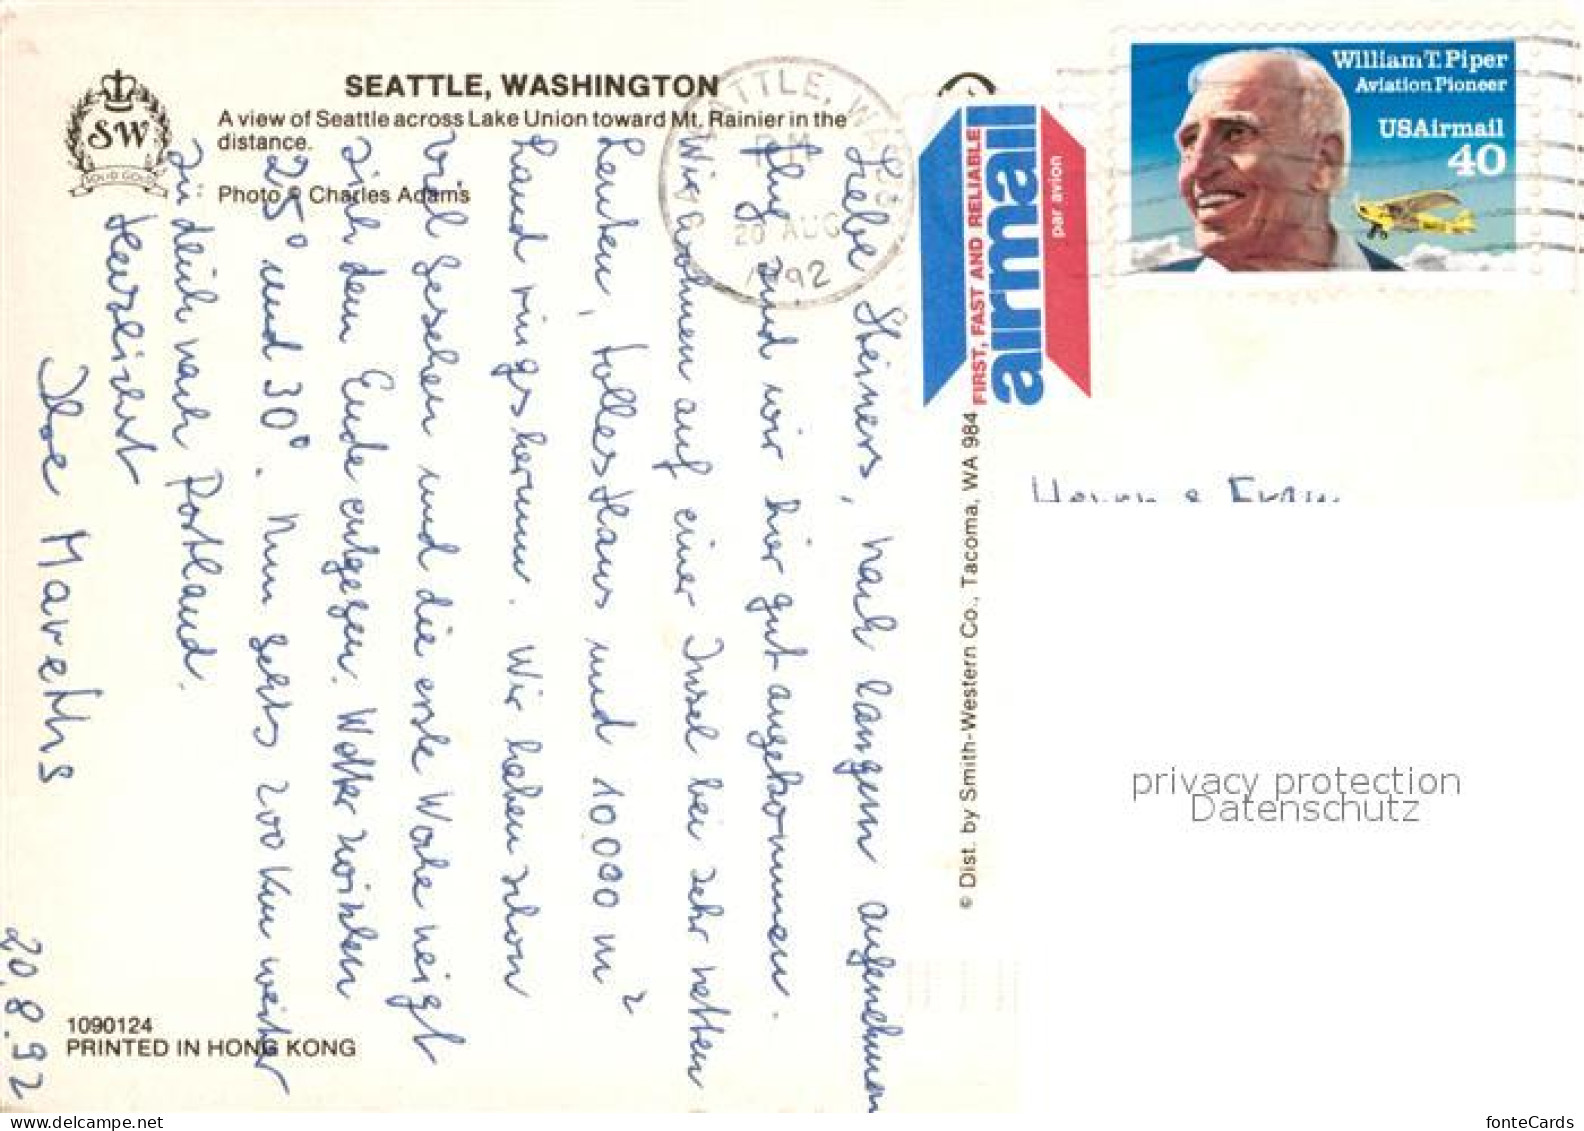 SEATTLE, WASHINGTON
A view of Seattle across Lake Union toward Mt. Rainier in the
distance.
Photo © Charles Adams
SW
SOLID GOLD
Liebe Steiners, nach langem angenehmen
Flug sind wir hier gut angekommen.
Wir wohnen auf einer Insel bei sehr netten
Leuten, tolles Haus und 10000 m²
Land ringsherum. Wir haben schon
viel gesehen und die erste Woche neigt
sich dem Ende entgegen. Wetter zwischen
25° und 30°. Nun gehts 200 km weiter
südlich nach Portland.
Herzlichst
Ihre Mareths
20.8.92
1090124
PRINTED IN HONG KONG
SEATTLE, WA
PM
20 AUG
1992
FIRST, FAST AND RELIABLE
airmail
par avion
© Dist. by Smith-Western Co., Tacoma, WA 984
William T. Piper
Aviation Pioneer
USAirmail
40
privacy protection
Datenschutz
fonteCards